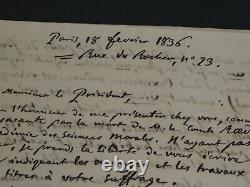 Paris, 18 février 1836.
= Rue du Rocher, n° 23.
Monsieur le Président,
l'honneur de me présenter chez vous, comme
vacante par la mort de M. le Comte Rœd
adémie des Sciences Morales. N'ayant pas
je prends la liberté de vous écrire
indiquant les et les travaux
titres à votre suffrage.